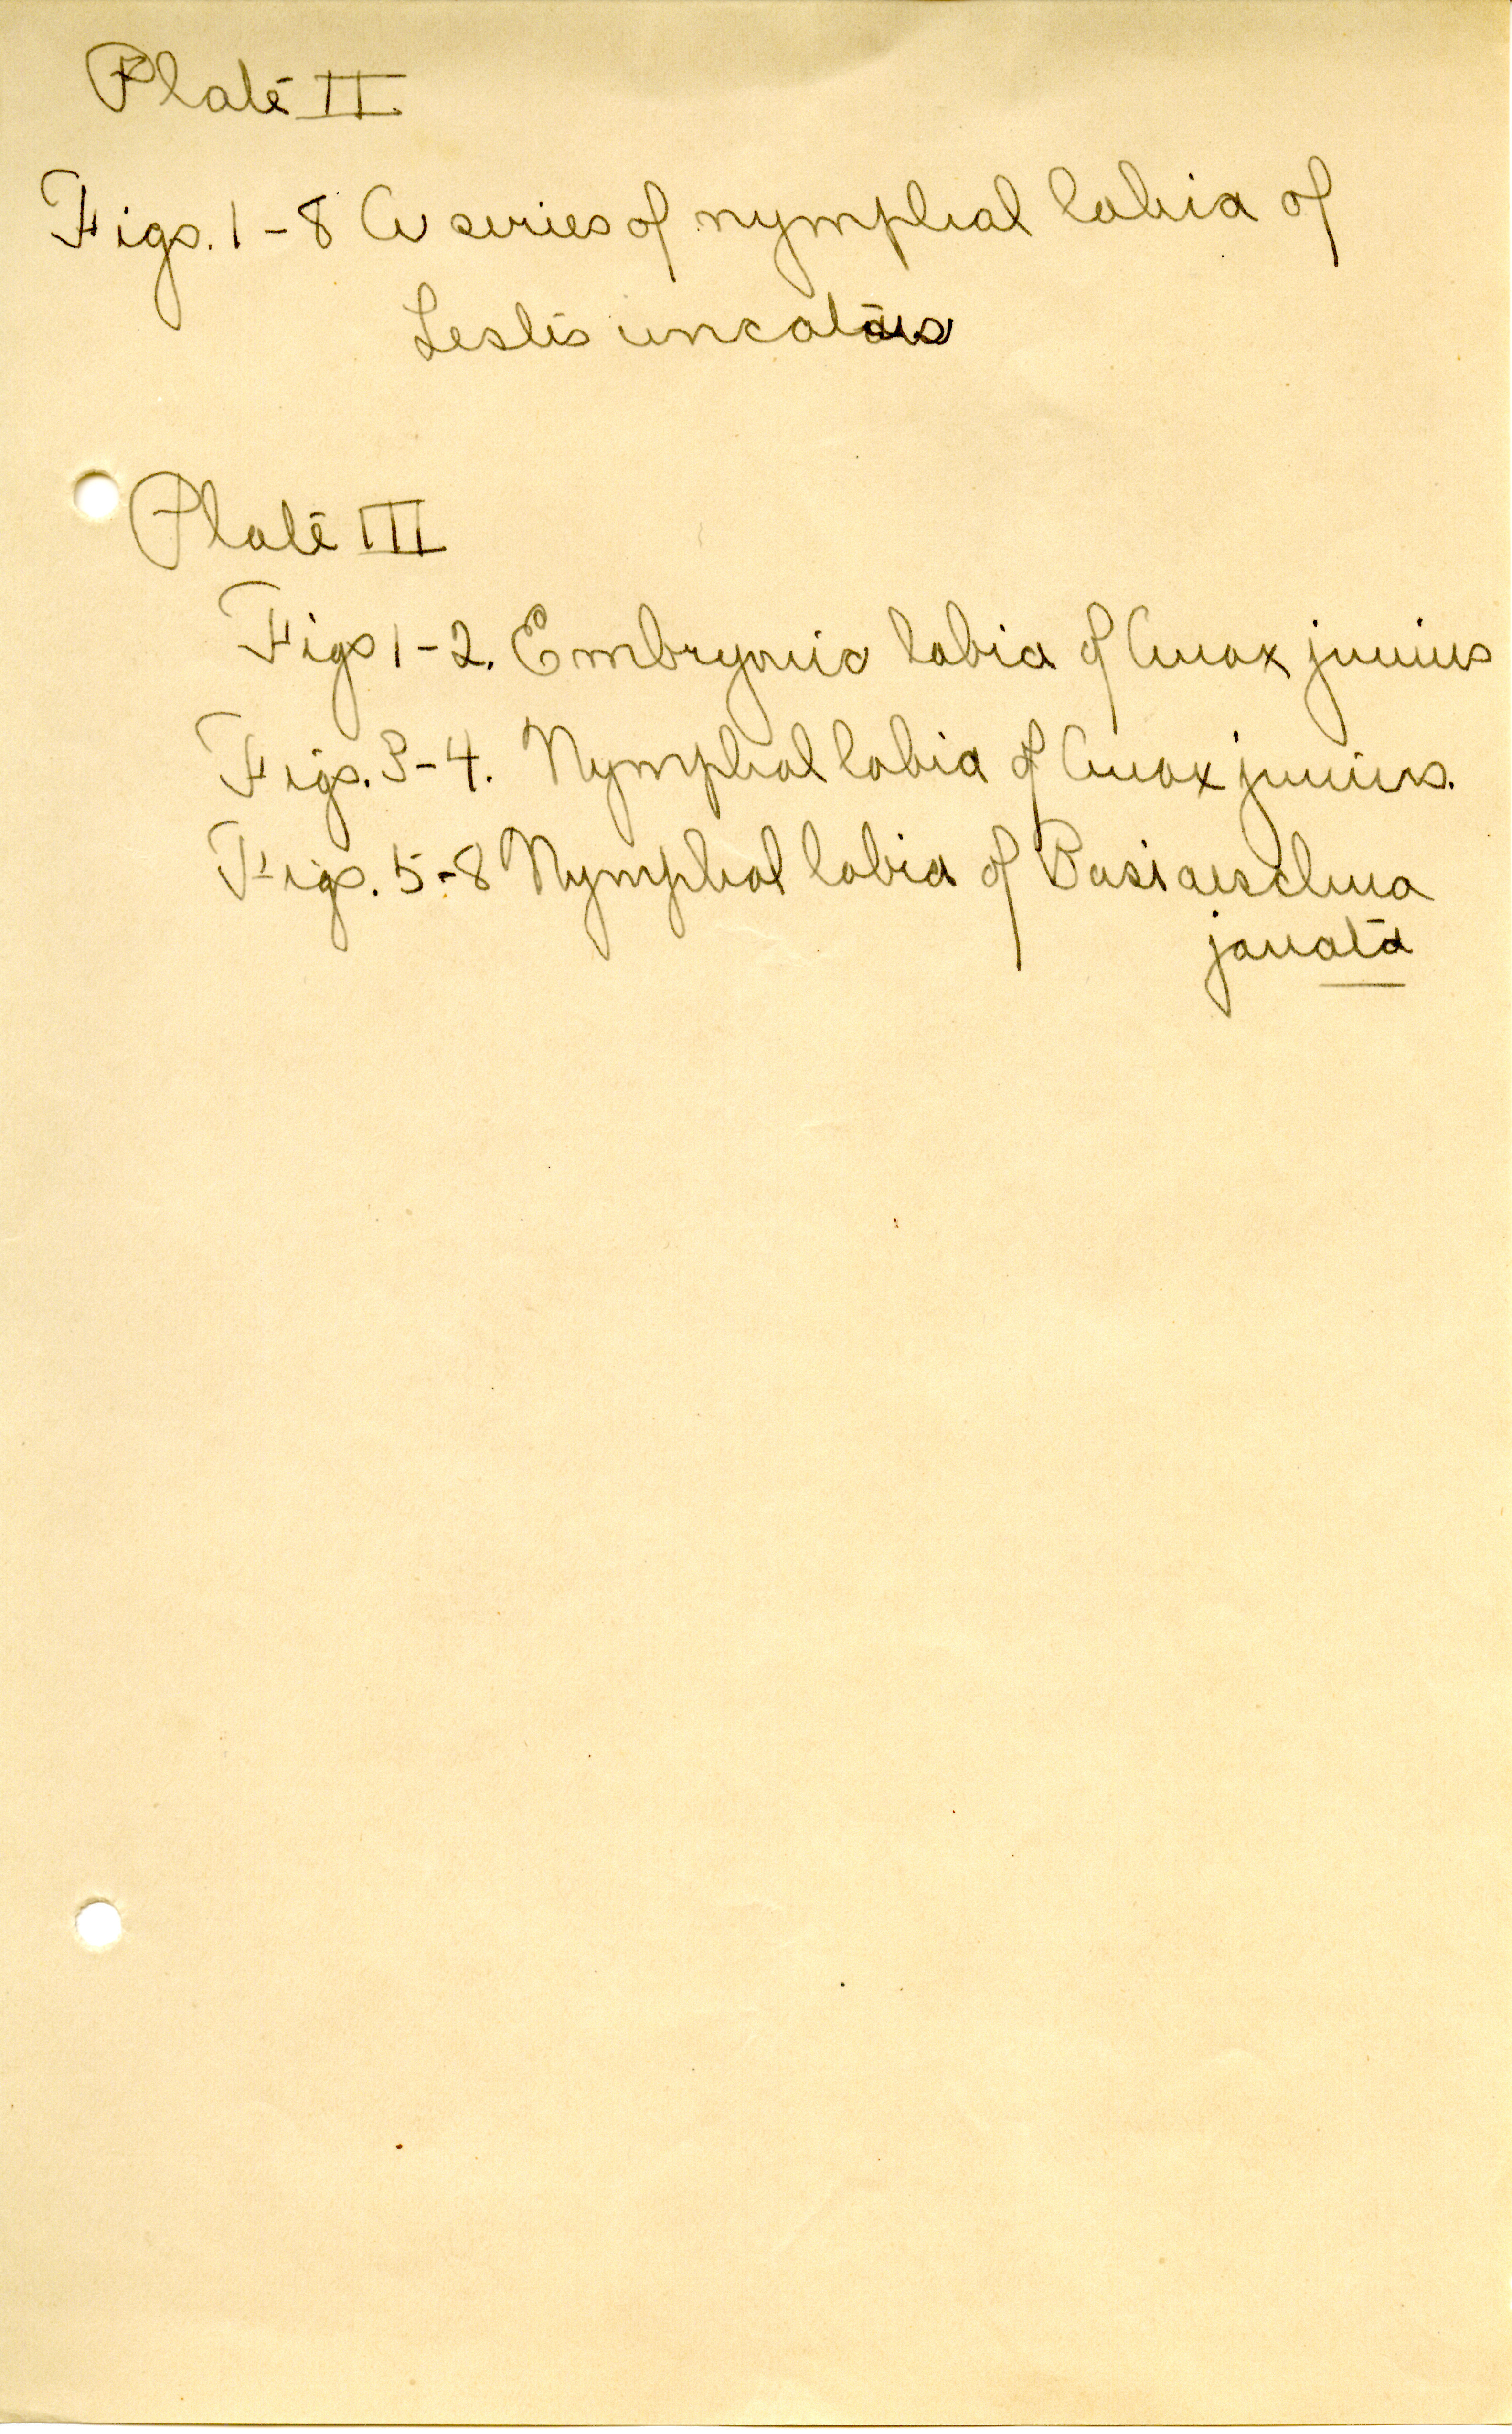 Plate II
Figs. 1-8 A series of nymphal labia of
Lestes uncatus
Plate III
Figs 1-2. Embryonic labia of Anax junius
Figs. 3-4. Nymphal labia of Anax junius.
Figs. 5-8 Nymphal labia of Basiaeschna
janata